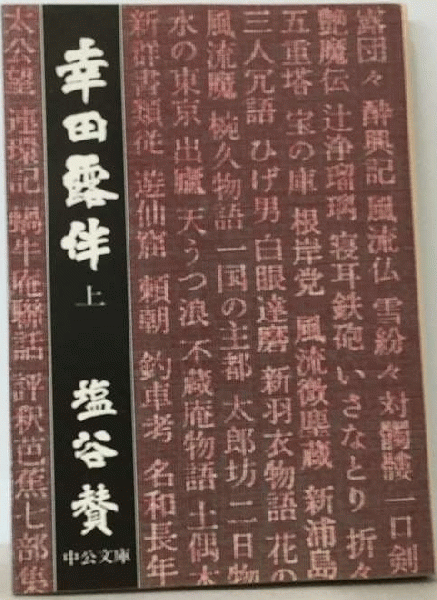 露団々 酔興記 風流仏 雪紛々 対髑髏 一口剣
艶魔伝 辻浄瑠璃 寝耳鉄砲 いさなとり 折々
五重塔 宝の庫 根岸党 風流微塵蔵 新浦島
三人冗語 ひげ男 白眼達磨 新羽衣物語 花の
風流魔 椀久物語 一国の主都 太郎坊 二日物
水の東京 出廬 天うつ浪 不蔵庵物語 土偶木
新群書類従 遊仙窟 頼朝 釣車考 名和長年
幸田露伴 上 塩谷賛
中公文庫
太公望 連環記 蝸牛庵聯話 評釈芭蕉七部集